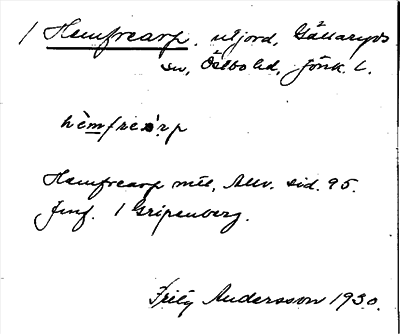 / Hemfrearp. utjord, Gällaryds
sn, Östbo hd, Jönk. l.
hèmfreàrp
Hemfrearp mtl, Allv. sid. 95.
Jmf. / Gripenberg.
Fritz Andersson 1930.